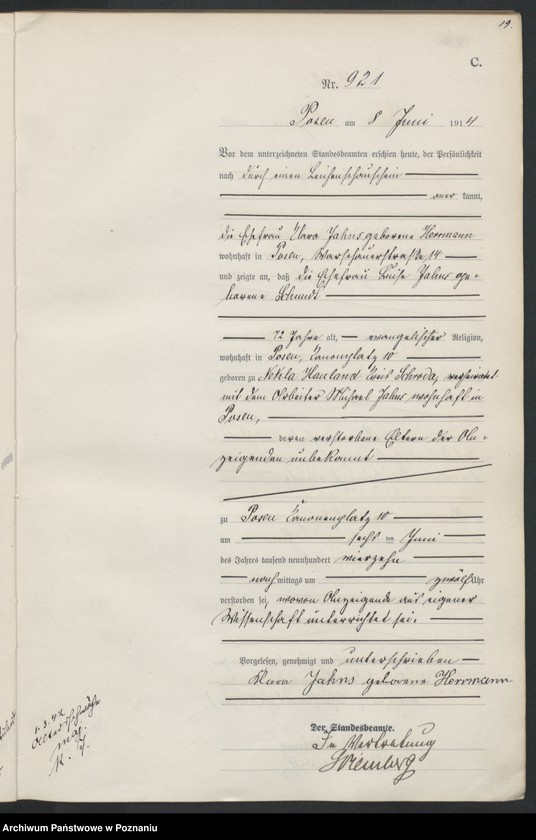 19.
C.
Nr. 921
Posen am 8 Juni 1914
Vor dem unterzeichneten Standesbeamten erschien heute, der Persönlichkeit
nach durch einen Leichenschauschein
aner kannt,
die Ehefrau Clara Jahns geborene Herrmann
wohnhaft in Posen, Warschauerstraße 14
und zeigte an, daß die Ehefrau Luise Jahns ge-
borene Schmidt
72 Jahre alt, evangelischer Religion,
wohnhaft in Posen, Canonenplatz 10
geboren zu Nekla Hauland Kreis Schroda, verheiratet
mit dem Arbeiter Michael Jahns wohnhaft in
Posen,
deren verstorbene Eltern der An-
zeigenden unbekannt
zu Posen Canonenplatz 10
am sechs ten Juni
des Jahres tausend neunhundert vierzehn
nach mittags um zwölf Uhr
verstorben sei, wovon Anzeigende aus eigener
Wissenschaft unterrichtet sei.
Vorgelesen, genehmigt und unterschrieben
Klara Jahns geborene Herrmann
Der Standesbeamte.
In Vertretung
1.3.42
Archiwum Państwowe w Poznaniu